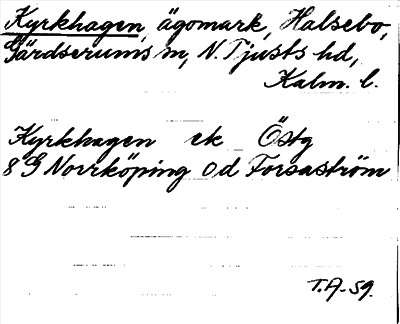 Kyrkhagen, ägomark, Halsebo,
Gärdserums sn, N. Tjusts hd,
Kalm. l.
Kyrkhagen ek Östg
8 G Norrköping Od Forsaström
T.A-59.